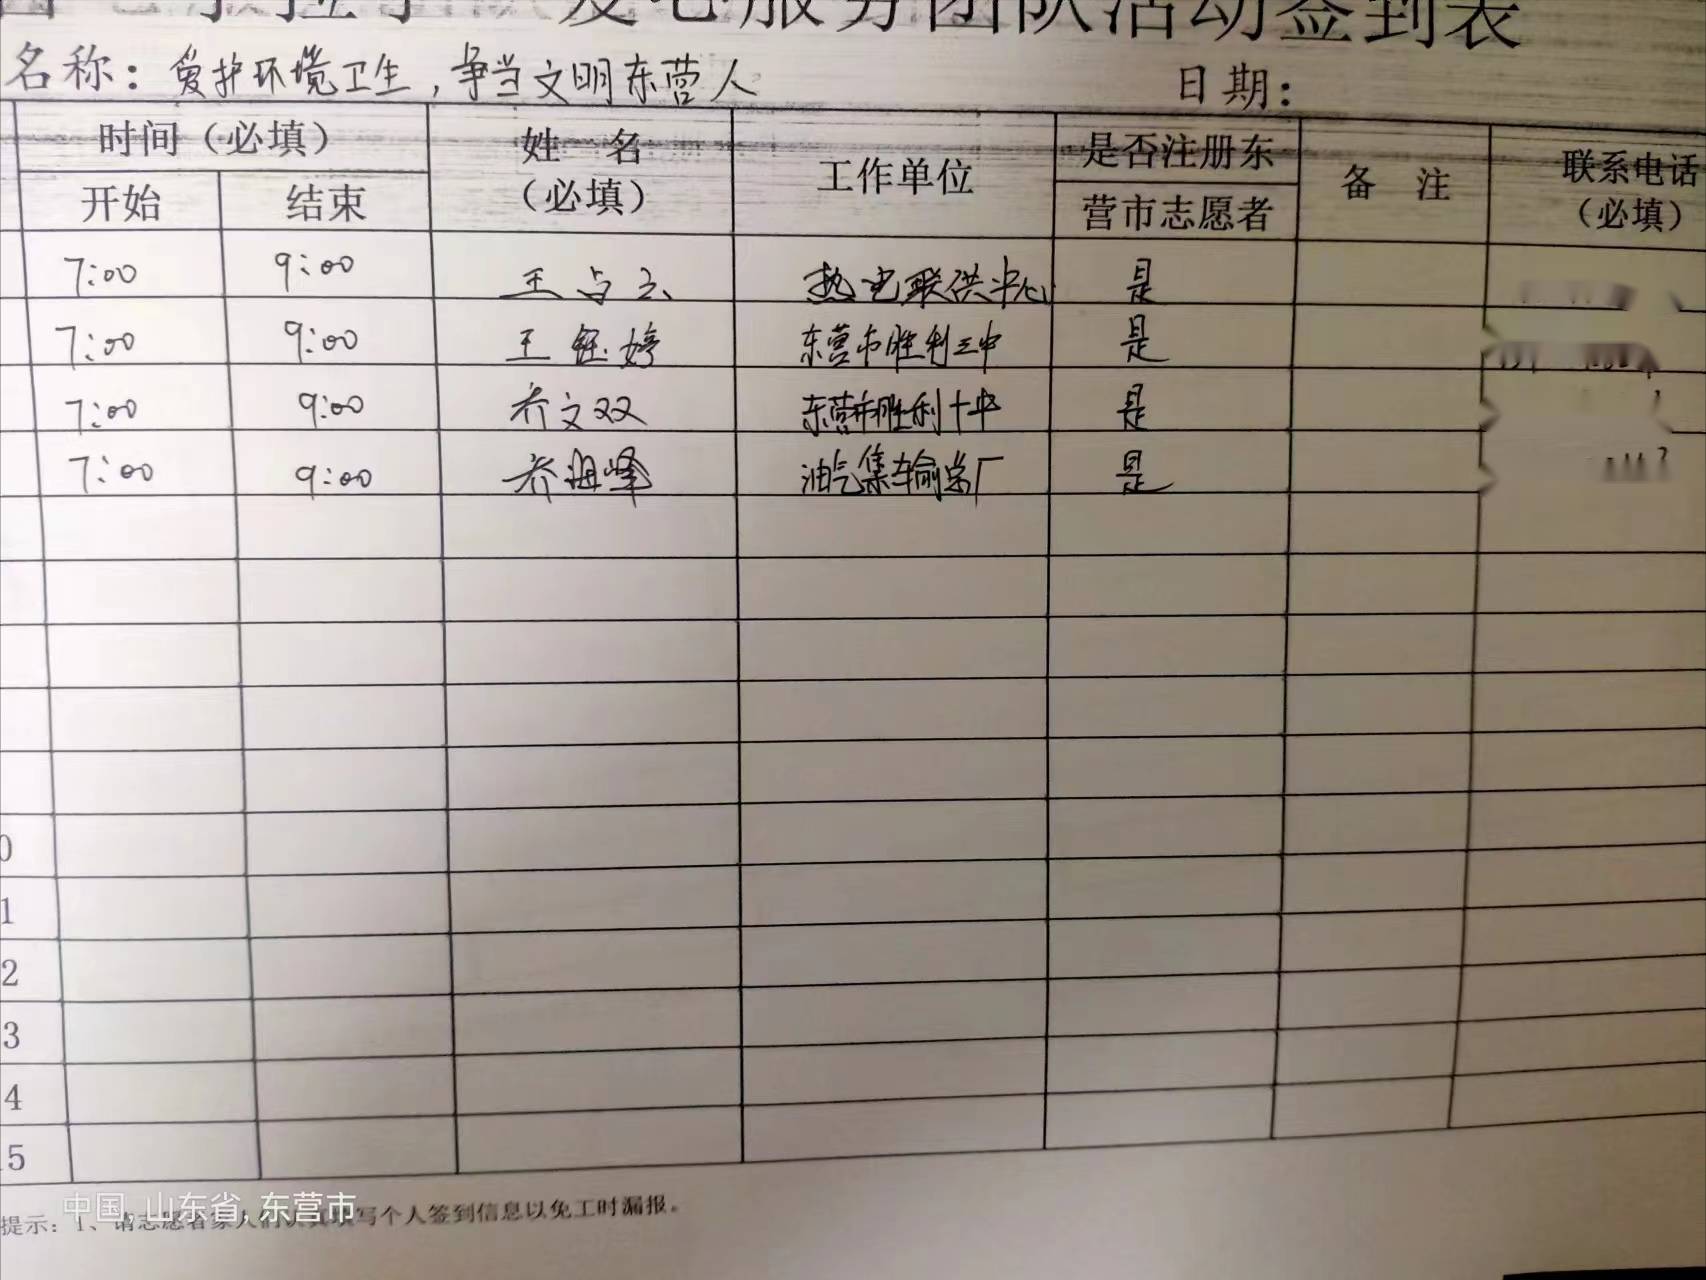 服务团队活动签到表
名称：爱护环境卫生，争当文明东营人 日期：
时间（必填） 姓 名（必填） 工作单位 是否注册东营市志愿者 备 注 联系电话（必填）
开始 结束
7:00 9:00 王占云 热电联供中心 是
7:00 9:00 王钰婷 东营市胜利三中 是
7:00 9:00 乔文双 东营市胜利十中 是
7:00 9:00 乔 峰 油气集输总厂 是
0
1
2
3
4
15
中国 山东省 东营市
提示：1、请志愿者家人们认真填写个人签到信息以免工时漏报。